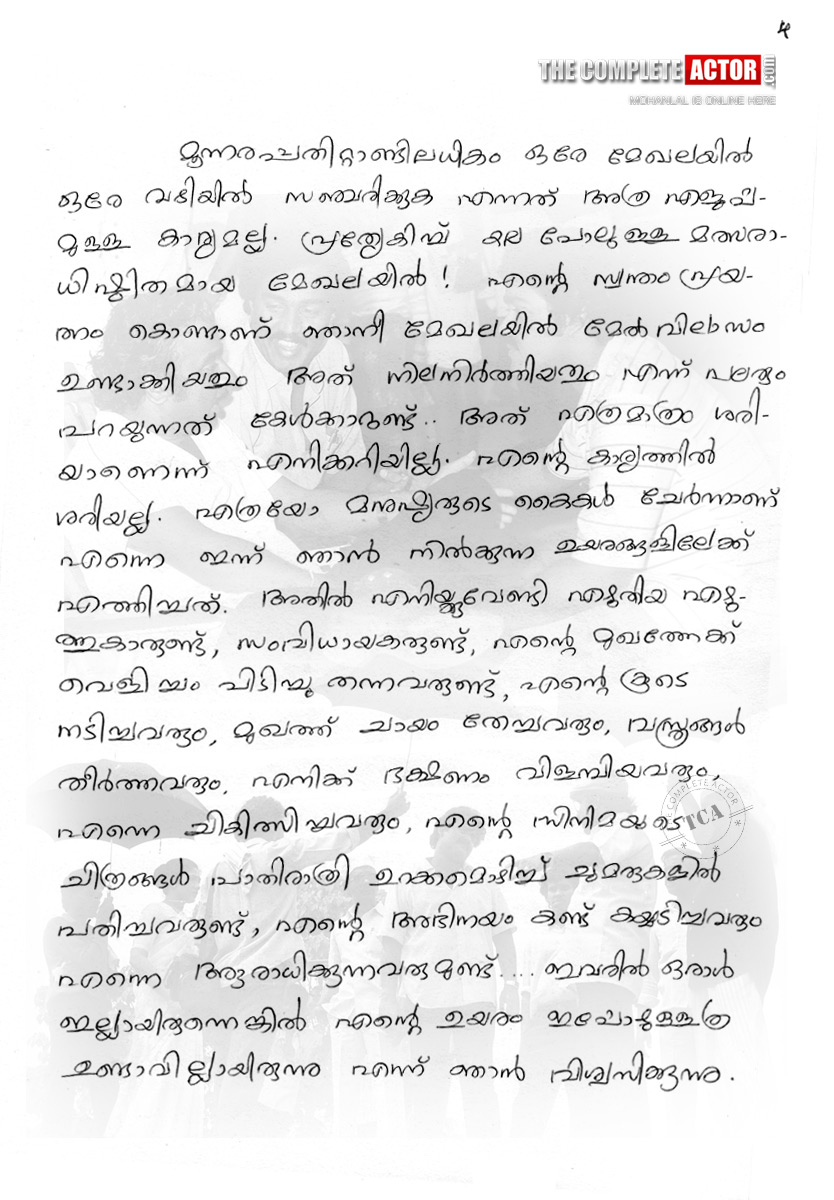 4
THE COMPLETE ACTOR.com
MOHANLAL IS ONLINE HERE
മൂന്നരപ്പതിറ്റാണ്ടിലധികം ഒരേ മേഖലയിൽ
ഒരേ വഴിയിൽ സഞ്ചരിക്കുക എന്നത് അത്ര എളുപ്പ-
മുള്ള കാര്യമല്ല. പ്രത്യേകിച്ച് കല പോലുള്ള മത്സരാ-
ധിഷ്ഠിതമായ മേഖലയിൽ! എന്റെ സ്വന്തം പ്രയ-
ത്നം കൊണ്ടാണ് ഞാനീ മേഖലയിൽ മേൽവിലാസം
ഉണ്ടാക്കിയതും അത് നിലനിർത്തിയതും എന്ന് പലരും
പറയുന്നത് കേൾക്കാറുണ്ട്.. അത് എത്രമാത്രം ശരി-
യാണെന്ന് എനിക്കറിയില്ല. എന്റെ കാര്യത്തിൽ
ശരിയല്ല. എത്രയോ മനുഷ്യരുടെ കൈകൾ ചേർന്നാണ്
എന്നെ ഇന്ന് ഞാൻ നിൽക്കുന്ന ഉയരങ്ങളിലേക്ക്
എത്തിച്ചത്. അതിൽ എനിയ്ക്കുവേണ്ടി എഴുതിയ എഴു-
ത്തുകാരുണ്ട്, സംവിധായകരുണ്ട്, എന്റെ മുഖത്തേക്ക്
വെളിച്ചം പിടിച്ചു തന്നവരുണ്ട്, എന്റെ കൂടെ
നടിച്ചവരും, മുഖത്ത് ചായം തേച്ചവരും, വസ്ത്രങ്ങൾ
തീർത്തവരും, എനിക്ക് ഭക്ഷണം വിളമ്പിയവരും,
എന്നെ ചികിത്സിച്ചവരും, എന്റെ സിനിമയുടെ
COMPLETE ACTOR
TCA
ചിത്രങ്ങൾ പാതിരാത്രി ഉറക്കമൊഴിച്ച് ചുമരുകളിൽ
പതിച്ചവരുണ്ട്, എന്റെ അഭിനയം കണ്ട് കയ്യടിച്ചവരും
എന്നെ ആരാധിക്കുന്നവരുമുണ്ട്.... ഇവരിൽ ഒരാൾ
ഇല്ലായിരുന്നെങ്കിൽ എന്റെ ഉയരം ഇപ്പോഴുള്ളത്ര
ഉണ്ടാവില്ലായിരുന്നു എന്ന് ഞാൻ വിശ്വസിക്കുന്നു.